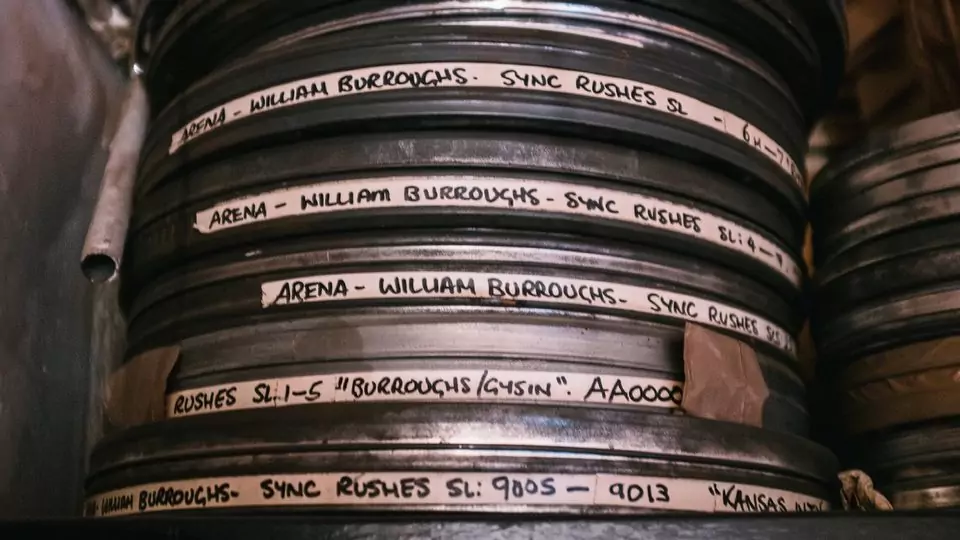 ARENA - WILLIAM BURROUGHS. SYNC RUSHES SL -
ARENA - WILLIAM BURROUGHS - SYNC RUSHES SL: 4 -
ARENA - WILLIAM BURROUGHS - SYNC RUSHES
RUSHES SL: 1-5 "BURROUGHS/GYSIN". AA0000
WILLIAM BURROUGHS- SYNC RUSHES SL: 9005 - 9013 "KANSAS